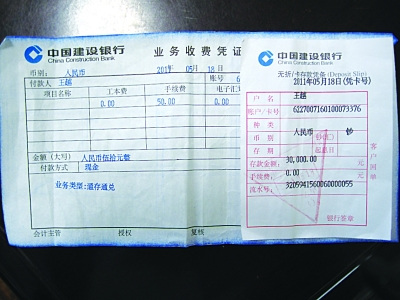 中国建设银行
China Construction Bank
业务收费凭证
币别: 人民币 2011年 05月 18日
付款人 王越 账号 6
项目名称 工本费 手续费 电子汇
0.00 50.00 0.00
金额(大写) 人民币伍拾元整
付款方式 现金
业务类型:通存通兑
会计主管 授权 复核
中国建设银行
China Construction Bank
无折/卡存款凭条 (Deposit Slip)
2011年05月18日(凭卡号)
户名 王越
账户/卡号 6227007160100073376
种类
币别 人民币 钞
存期 起息日
存款金额 30,000.00 元
手续费: 0.00 元
流水号: 3205941560060000055
银行签章
客户回单